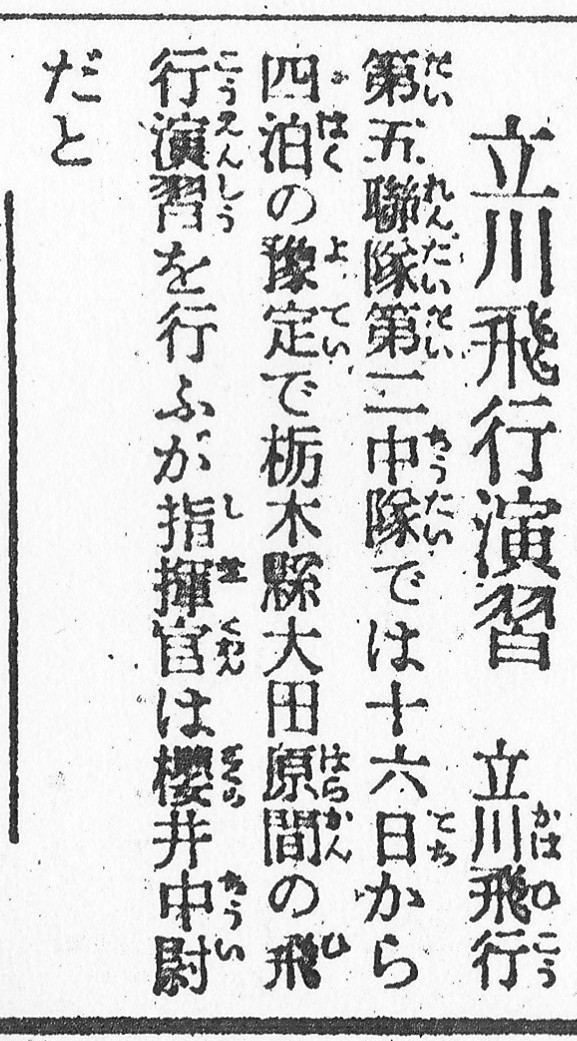 立川飛行演習　立川飛行
第五聯隊第二中隊では十六日から
四泊の豫定で栃木縣大田原間の飛
行演習を行ふが指揮官は櫻井中尉
だと